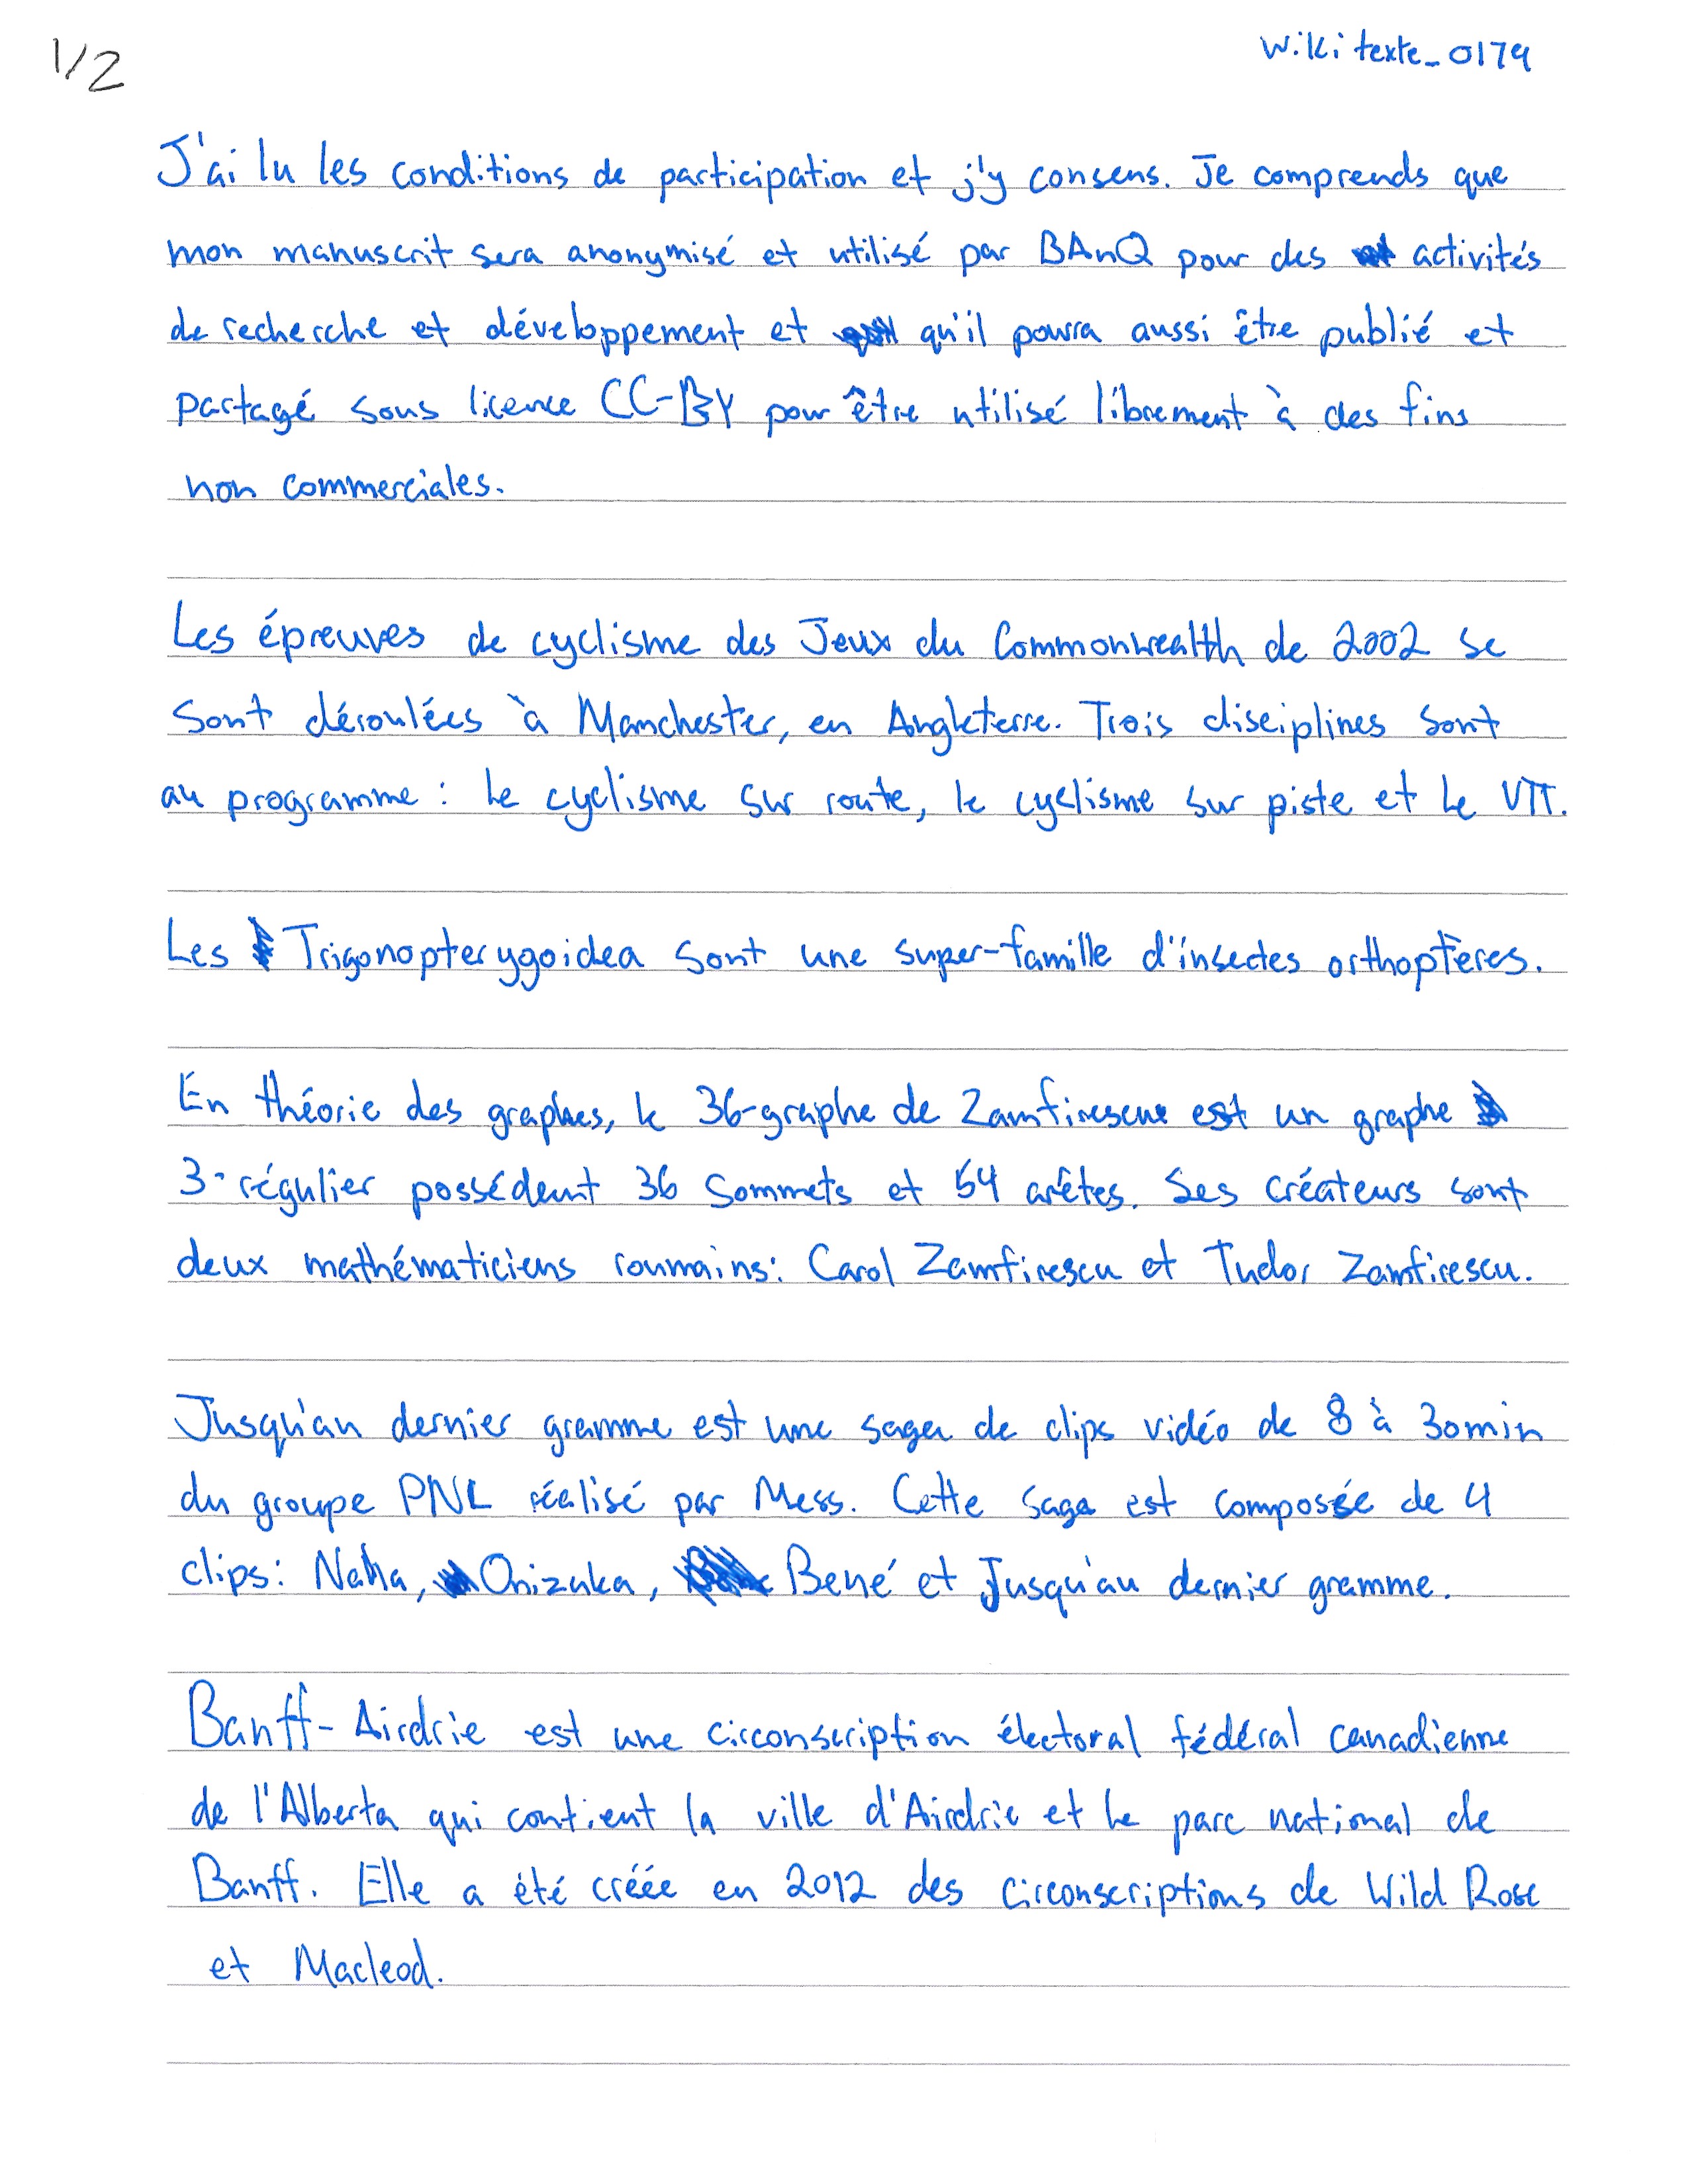 1/2
Wikitexte_0179
J'ai lu les conditions de participation et j'y consens. Je comprends que
mon manuscrit sera anonymisé et utilisé par BAnQ pour des activités
de recherche et développement et qu'il poura aussi être publié et
partagé sous licence CC-BY pour être utilisé librement à des fins
non commerciales.
Les épreuves de cyclisme des Jeux du Commonwealth de 2002 se
sont déroulées à Manchester, en Angleterre. Trois disciplines sont
au programme : le cyclisme sur route, le cyclisme sur piste et le VTT.
Les Trigonopterygoidea sont une super-famille d'insectes orthoptères.
En théorie des graphes, le 36-graphe de Zamfirescu est un graphe
3-régulier possédent 36 sommets et 54 arêtes. Ses créateurs sont
deux mathématiciens roumains: Carol Zamfirescu et Tudor Zamfirescu.
Jusqu'au dernier gramme est une saga de clips vidéo de 8 à 30min
du groupe PNL réalisé par Mess. Cette saga est composée de 4
clips: Naha, Onizuka, Bené et Jusqu'au dernier gramme.
Banff-Airdrie est une circonscription électoral fédéral canadienne
de l'Alberta qui contient la ville d'Airdrie et le parc national de
Banff. Elle a été créée en 2012 des circonscriptions de Wild Rose
et Macleod.